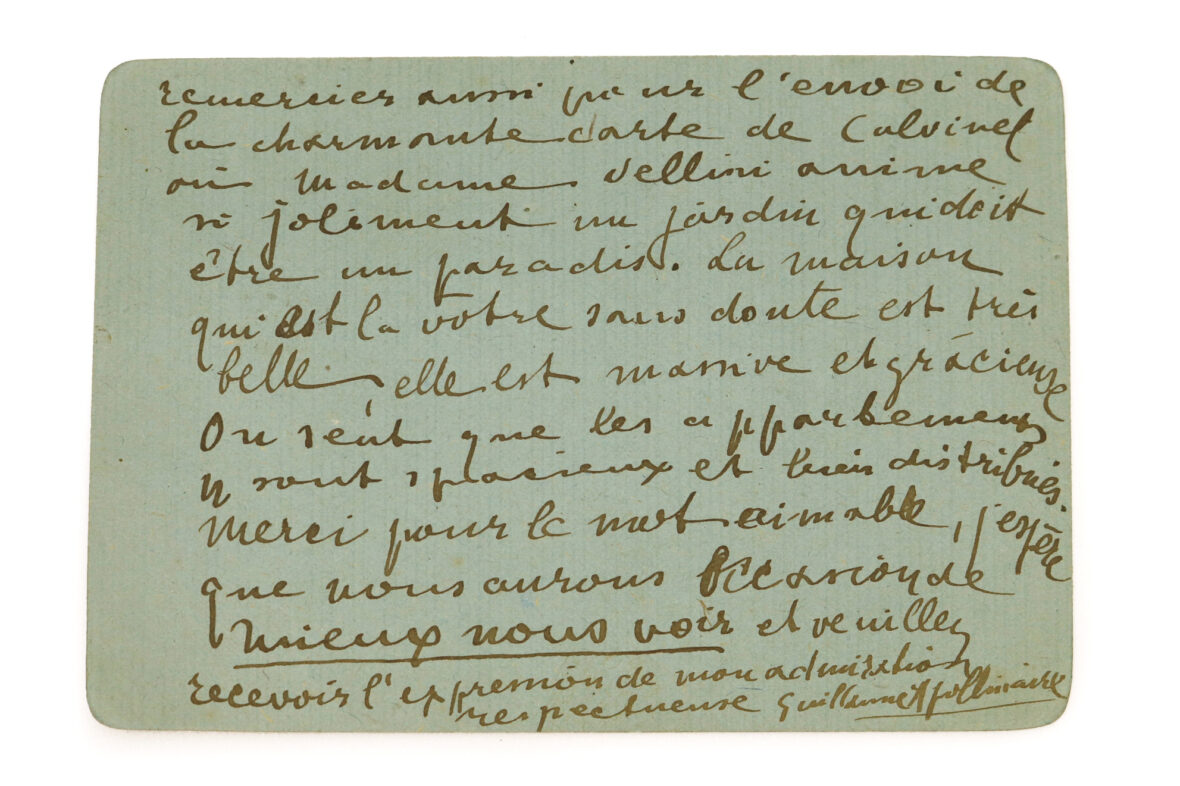 remercier aussi pour l'envoi de
la charmante carte de Calvinet
où Madame Vellini anime
si joliment un jardin qui doit
être un paradis. La maison
qui est la vôtre sans doute est très
belle, elle est massive et gràcieuse
On sent que les appartements
y sont spacieux et bien distribués.
Merci pour le mot aimable, j'espère
que nous aurons l'occasion de
mieux nous voir et veuillez
recevoir l'expression de mon admiration
respectueuse Guillaume Apollinaire